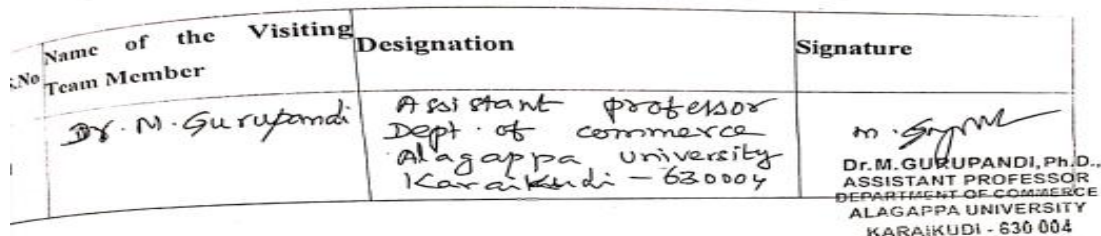 S.No Name of the Visiting Team Member Designation Signature
Dr. M. Gurupandi
Assistant professor
Dept. of commerce
Alagappa university
Karaikudi - 630004
Dr.M.GURUPANDI, Ph.D.,
ASSISTANT PROFESSOR
DEPARTMENT OF COMMERCE
ALAGAPPA UNIVERSITY
KARAIKUDI - 630 004